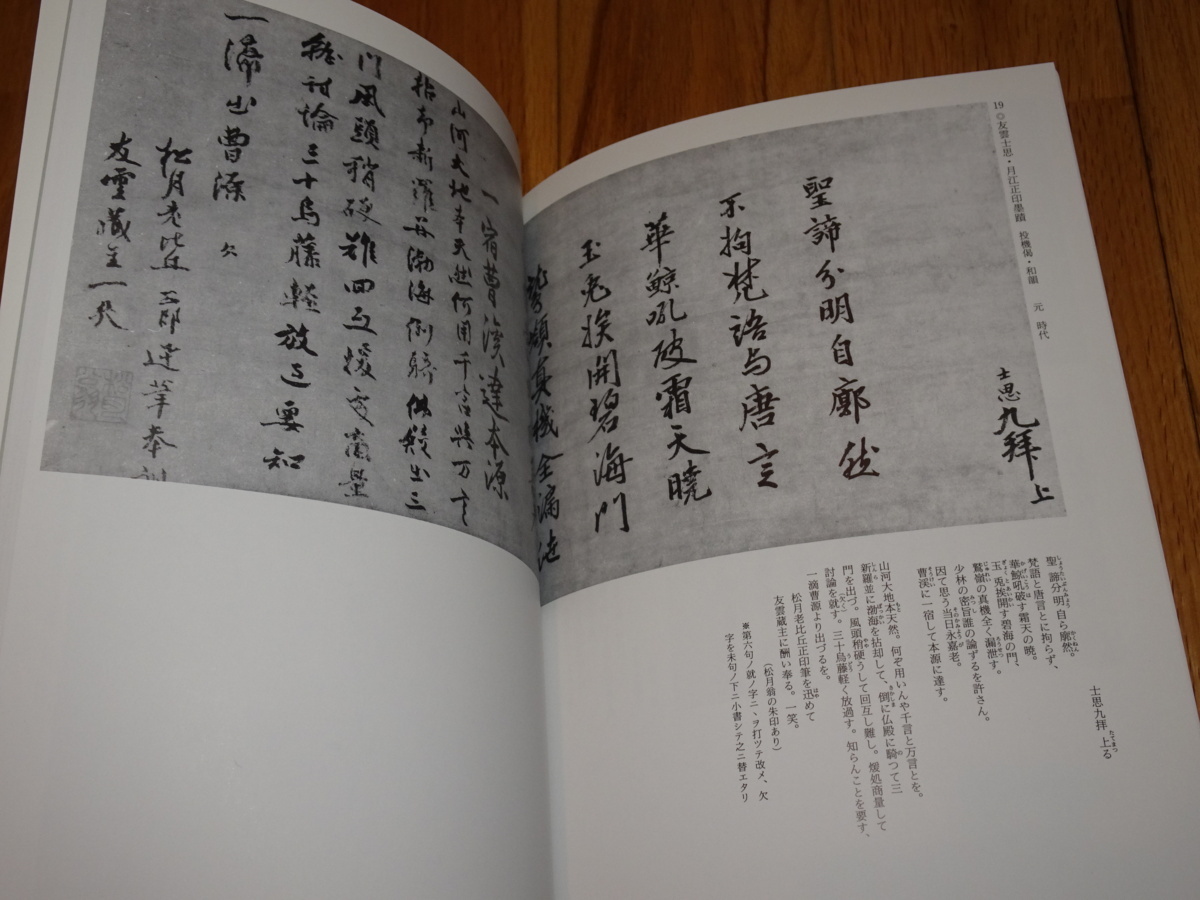 19◎友雲士思・月江正印墨蹟　投機偈・和韻　元　時代
士思九拝上
聖諦分明自廓然
不拘梵語与唐言
華鯨吼破霜天曉
玉兎挨開碧海門
鷲嶺真機全漏
一宿曹溪達本源
山河大地本天然何用千言與万言
拈却新羅并渤海倒騎佛殿出三
門風頭稍硬難回互援處商量
討論三十烏藤軽放過要知
一滴出曹源
松月老比丘正印迅筆奉
友雲蔵主一笑
士思九拝　上る
聖諦分明自ら廓然。
梵語と唐言とに拘らず、
華鯨吼破す霜天の曉。
玉兎挨開す碧海の門、
鷲嶺の真機全く漏泄す。
少林の密旨誰の論ずるを許さん。
因て思う当日永嘉老。
曹渓に一宿して本源に達す。
山河大地本天然。何ぞ用いんや千言と万言とを。
新羅並に渤海を拈却して、倒に仏殿に騎つて三
門を出づ。風頭稍硬うして回互し難し。煖処商量して
討論を就す。三十烏藤軽く放過す。知らんことを要す、
一滴曹源より出づるを。
松月老比丘正印筆を迅めて
友雲蔵主に酬い奉る。一笑。
（松月翁の朱印あり）
※第六句ノ就ノ字ニ、ヲ打ツテ改メ、欠
字を朱句ノ下ニ小書シテ之ニ替エタリ